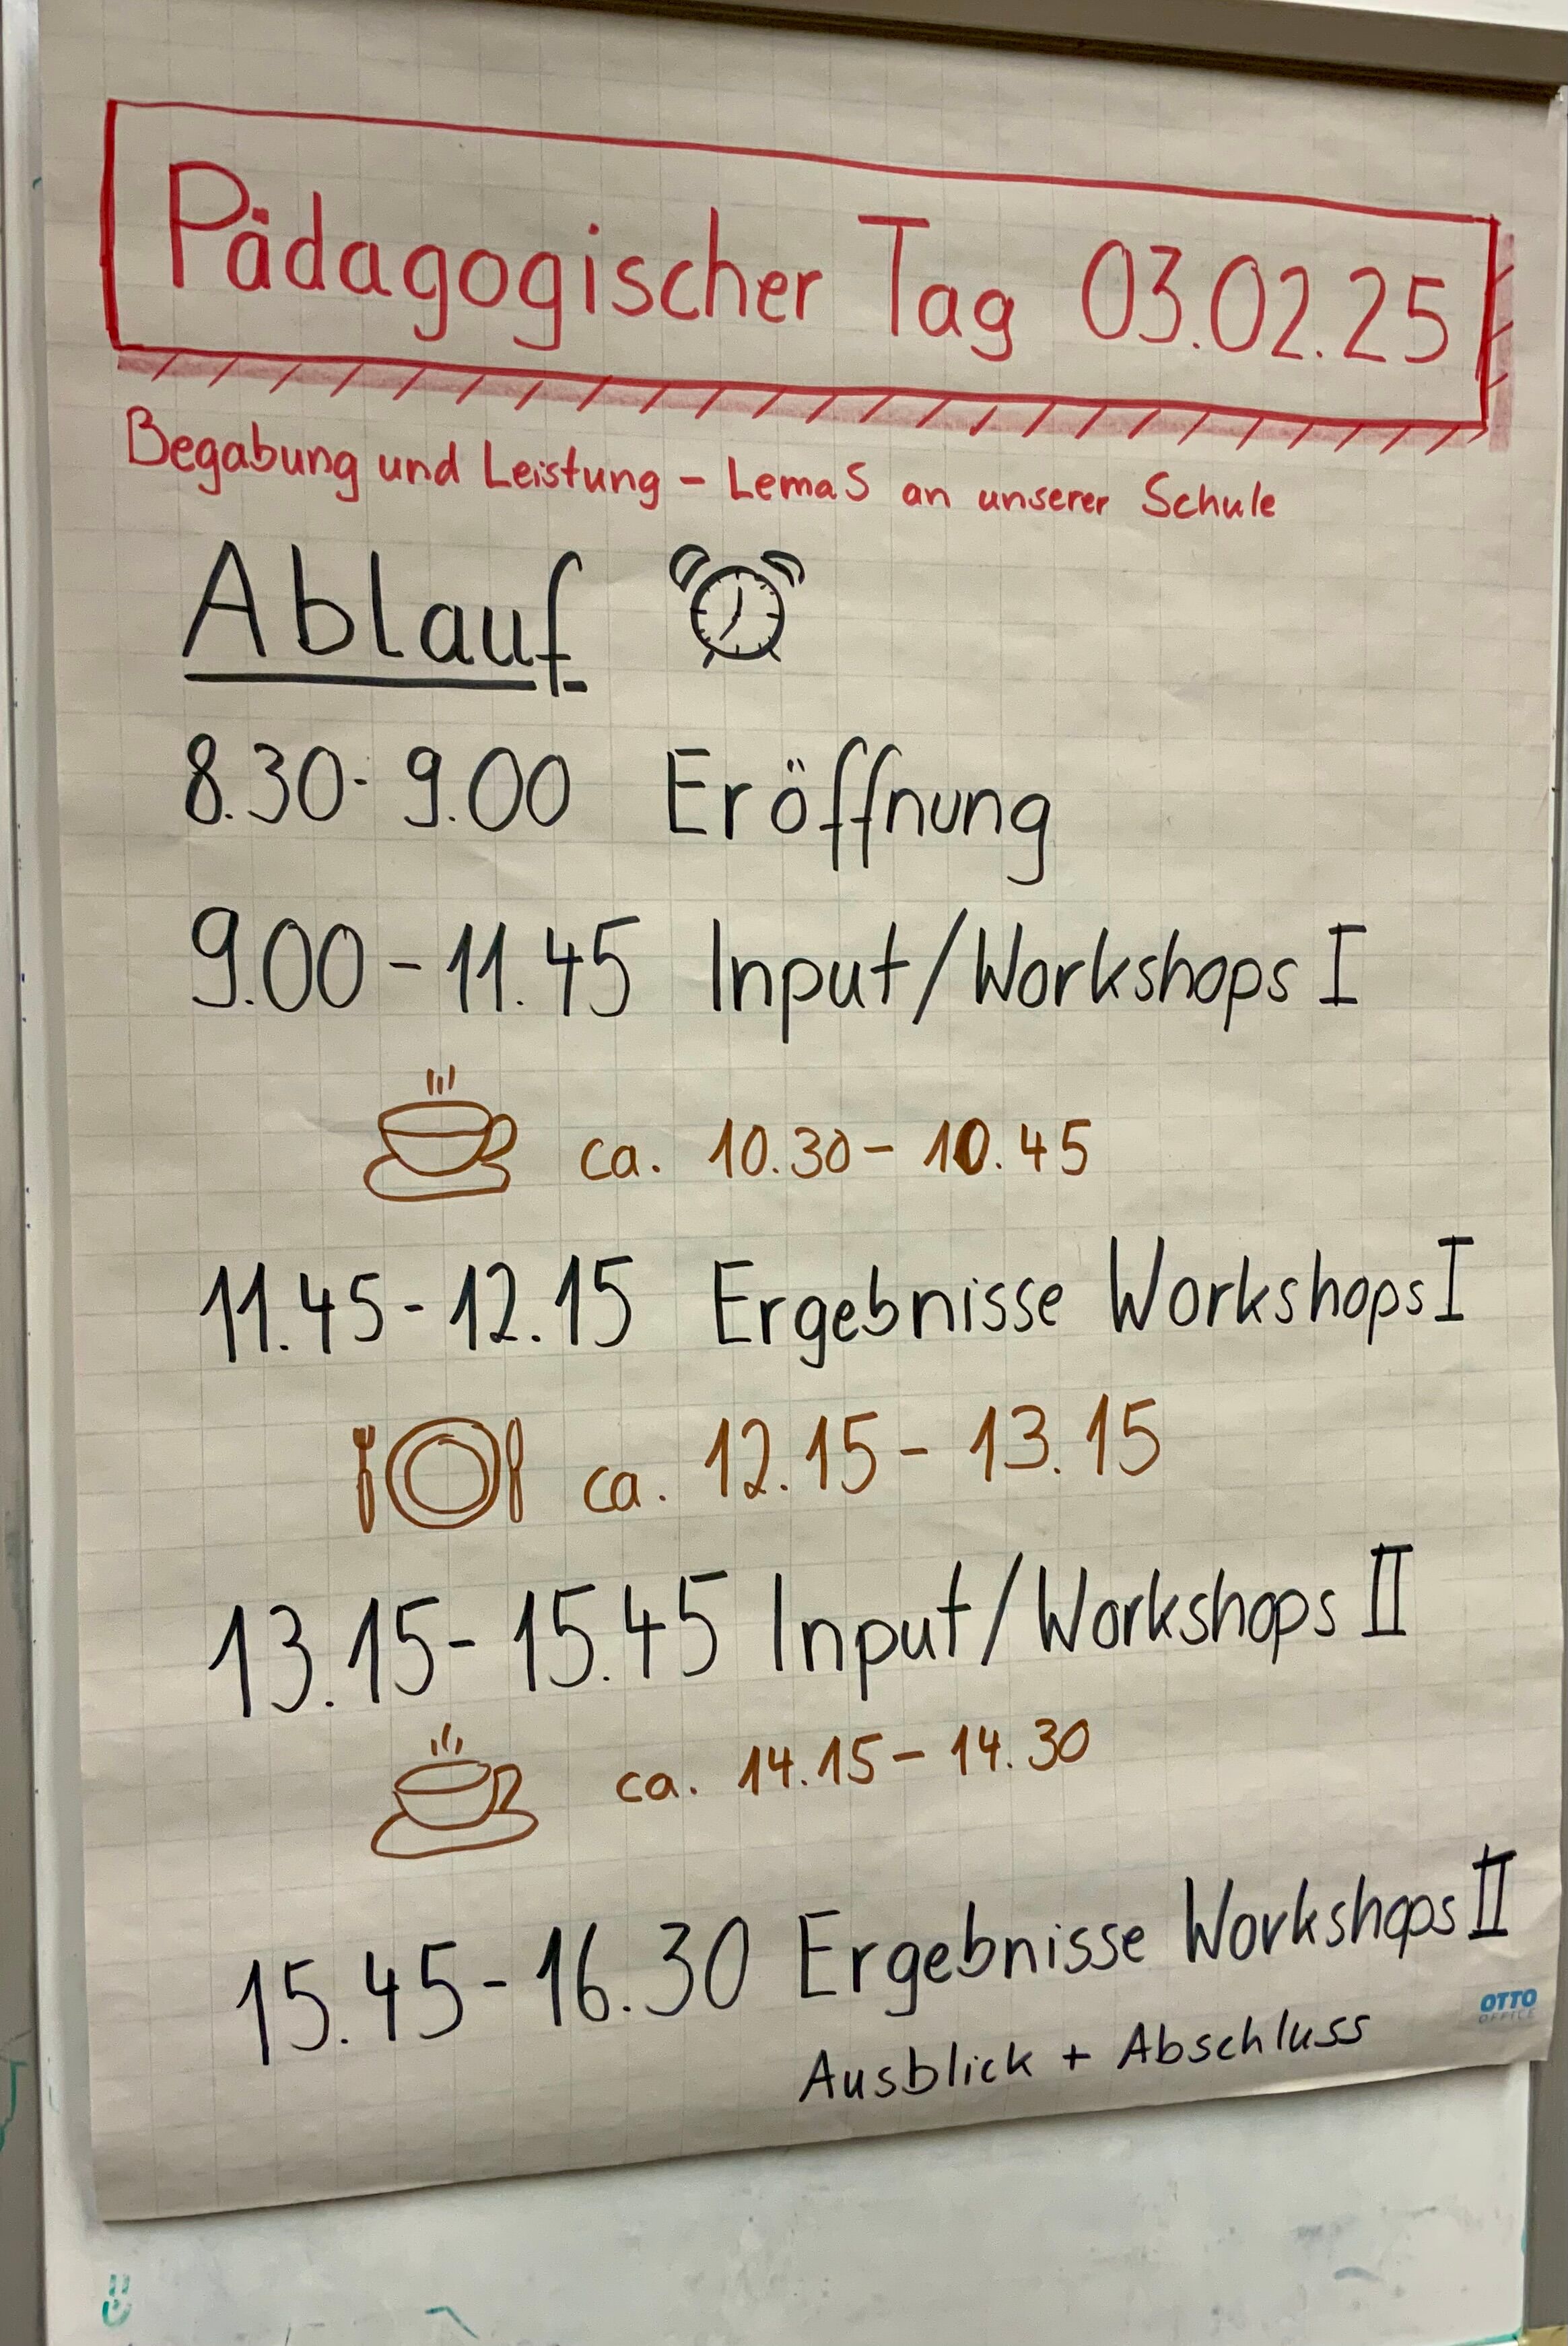 Pädagogischer Tag 03.02.25
Begabung und Leistung - LemaS an unserer Schule
Ablauf
8.30-9.00 Eröffnung
9.00-11.45 Input/Workshops I
ca. 10.30-10.45
11.45-12.15 Ergebnisse Workshops I
ca. 12.15-13.15
13.15-15.45 Input/Workshops II
ca. 14.15-14.30
15.45-16.30 Ergebnisse Workshops II
Ausblick + Abschluss
OTTO
OFFICE